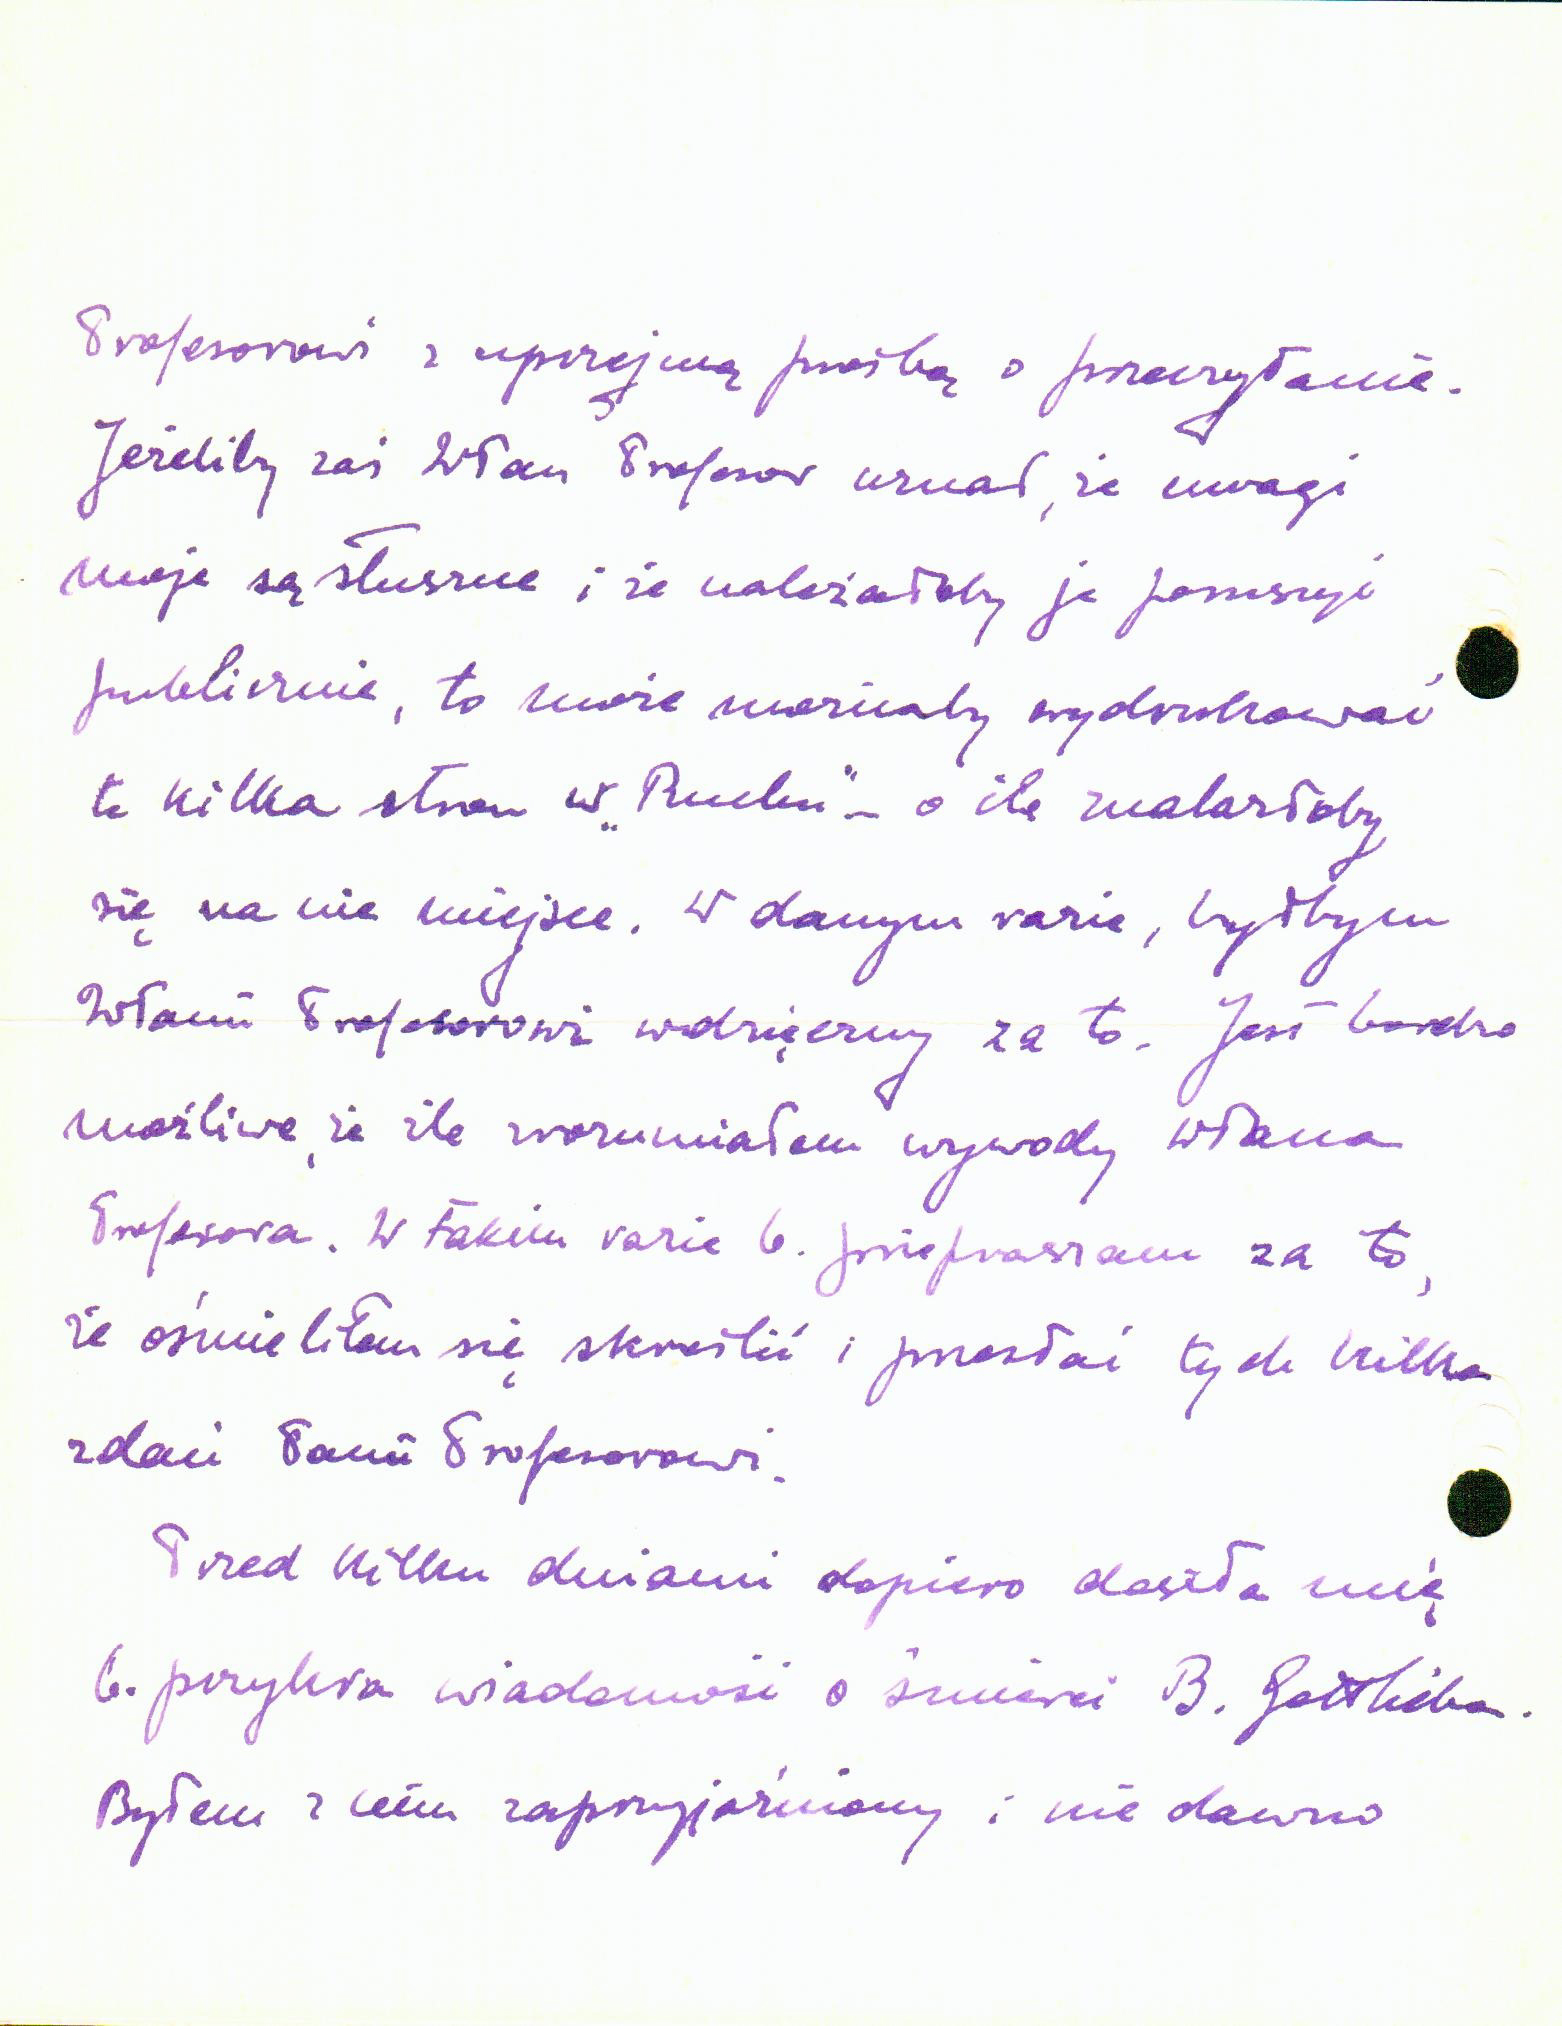 Profesorowi z uprzejmą prośbą o przeczytanie.
Jeżeliby zaś WPan Profesor uznał, że uwagi
moje są słuszne i że należałoby je poruszyć
publicznie, to może możnaby wydrukować
te kilka stron w „Ruchu" – o ile znalazłoby
się na nie miejsce. W danym razie, byłbym
WPanu Profesorowi wdzięczny za to. Jest bardzo
możliwe, że źle zrozumiałem wywody WPana
Profesora. W takim razie b. przepraszam za to,
że ośmieliłem się skreślić i przesłać tych kilka
zdań Panu Profesorowi.
Przed kilku dniami dopiero doszła mię
b. przykra wiadomość o śmierci B. Gottlieba.
Byłem z nim zaprzyjaźniony i nie dawno